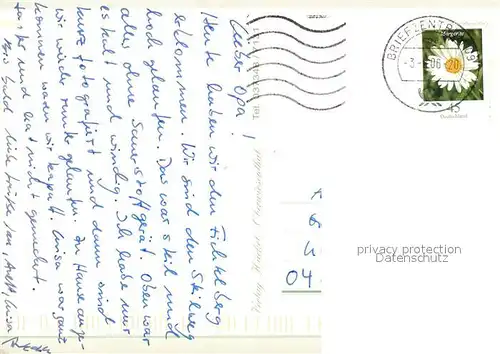 Lieber Opa!
Heute haben wir den Fichtelberg
erklommen. Wir sind den Skiweg
hoch gelaufen. Das war steil und
alles ohne Sauerstoffgerät. Oben war
es kalt und windig. Ich habe nur
kurz fotografiert und dann sind
wir wieder runter gelaufen. Zu Hause ange-
kommen waren wir kaputt. Luisa war ganz
tapfer und hat nicht gemeckert.
Bis bald liebe Grüße Jan, Anett, Luisa
Tel.
BRIEFZENTRUM 09
-3. 06
20
Margerite
45
Deutschland
04
privacy protection
Datenschutz